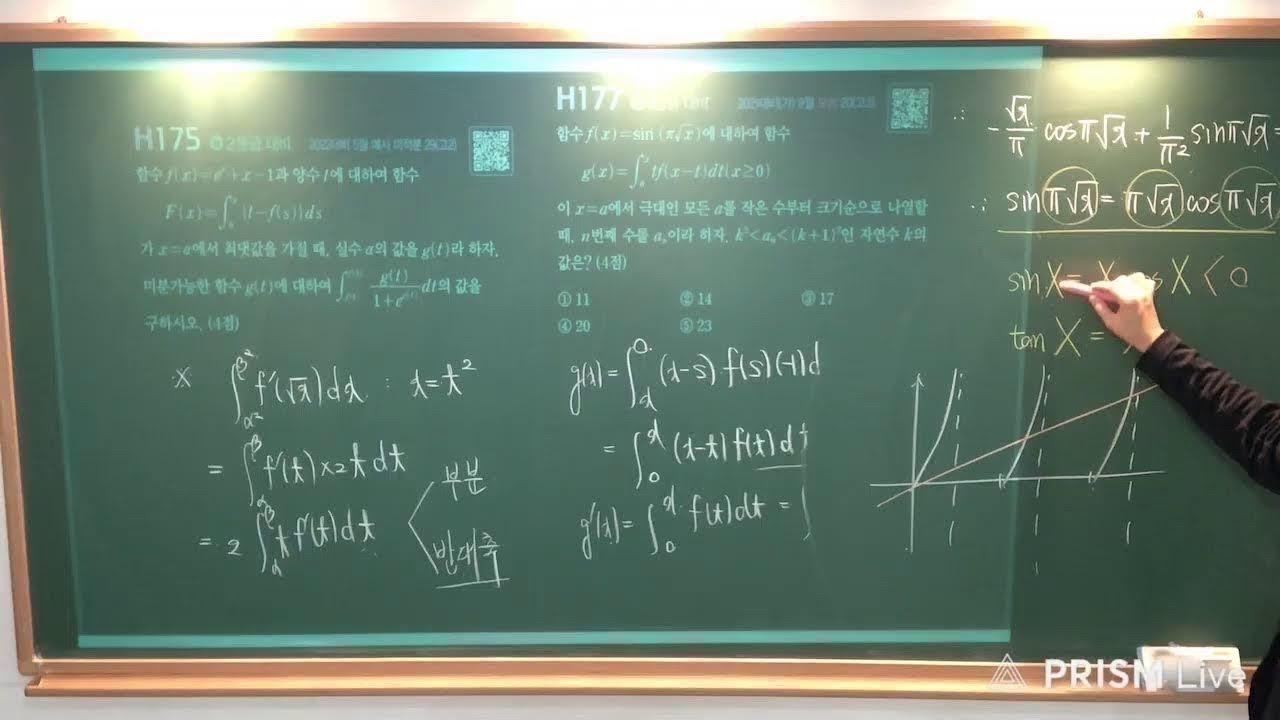 H175 2등급 대비
함수 f(x)=eˣ+x−1과 양수 t에 대하여 함수
F(x)=∫₀ˣ {t−f(s)}ds
가 x=α에서 최댓값을 가질 때, 실수 α의 값을 g(t)라 하자.
미분가능한 함수 g(t)에 대하여 ∫ g(t)/(1+e^{g(t)}) dt의 값을
구하시오. (4점)
※ ∫_{α²}^{β²} f'(√x)dx : x=t²
= ∫_α^β f'(t)×2t dt
= 2∫_α^β t f'(t)dt
부분
반대쪽
H177
함수 f(x)=sin (π√x)에 대하여 함수
g(x)=∫₀ˣ tf(x−t)dt(x≥0)
이 x=a에서 극대인 모든 a를 작은 수부터 크기순으로 나열할
때, n번째 수를 aₙ이라 하자. k²<a₆<(k+1)²인 자연수 k의
값은? (4점)
① 11 ② 14 ③ 17
④ 20 ⑤ 23
g(x)=∫_x^0 (x-s) f(s)(-1)d
= ∫_0^x (x-t) f(t)dt
g'(x)= ∫_0^x f(t)dt =
∴ -√x/π cosπ√x + 1/π² sinπ√x =
∴ sin π√x = π√x cos π√x
sin X = X s X < 0
tan X =
PRISM Live